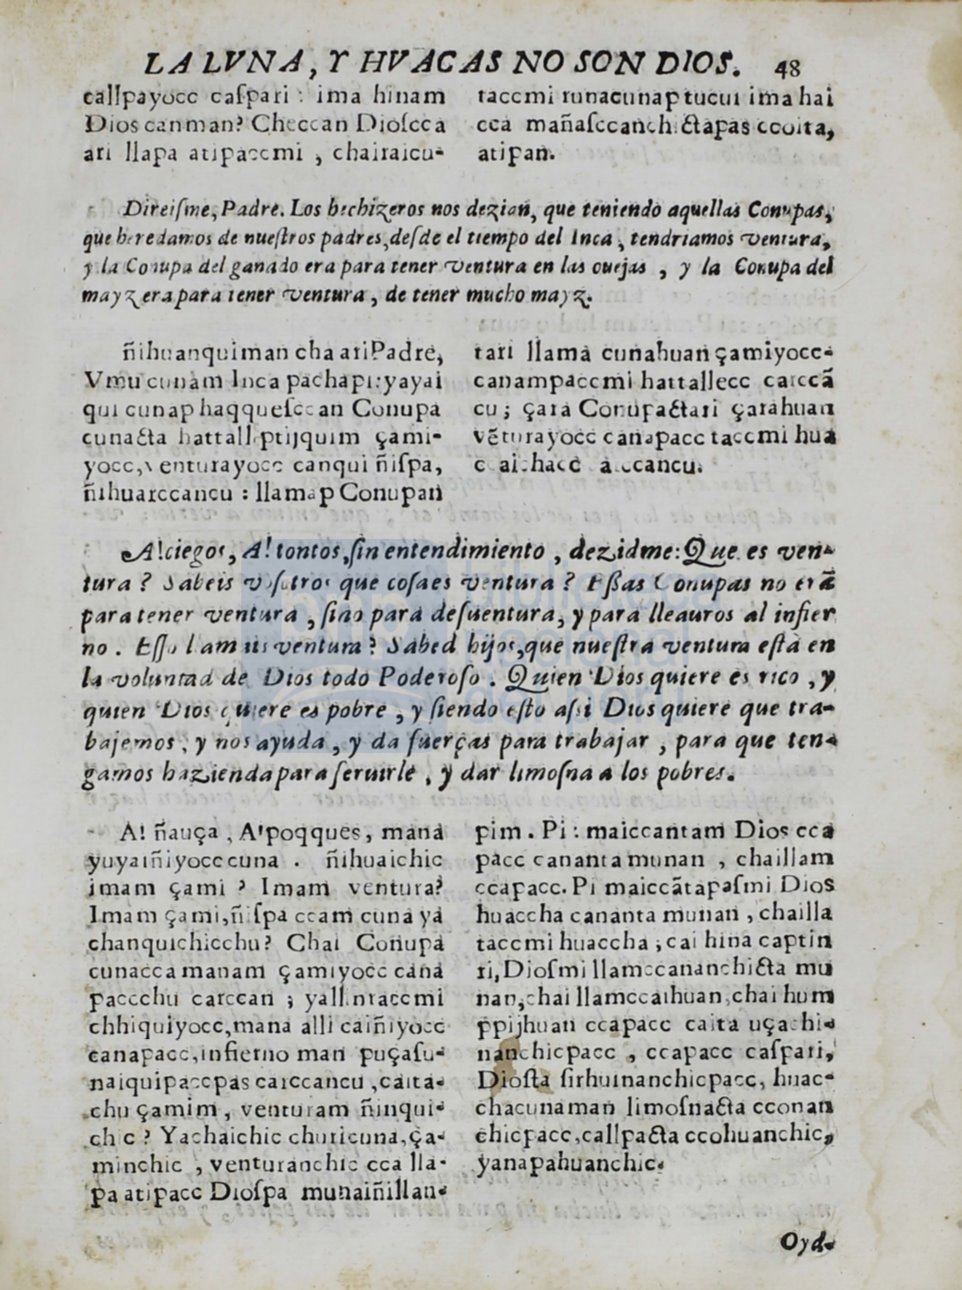 LA LVNA, Y HVACAS NO SON DIOS. 48
callpayocc caſpari : ima hinam
Dioscanman? Checcan Dioſcca
ari llapa atipaccmi , chairaicu-
taccmi runacunap tucui ima hai
cca mañaſccanchictapas ccoita,
atipan.
Direiſme, Padre. Los hechizeros nos dezian, que teniendo aquellas Conupas,
que heredamos de nueſtros padres, deſde el tiempo del Inca , tendriamos ventura,
y la Conupa del ganado era para tener ventura en las ouejas , y la Conupa del
mayz era para tener ventura , de tener mucho mayz.
ñihuanquiman cha ari Padre,
Vmu cunam Inca pachapi: yayai
qui cunap haqqueſccan Conupa
cunacta hattallptijquim çami-
yocc, venturayocc canqui ñiſpa,
ñihuarccancu : llamap Conupan
tari llama cunahuan çamiyocc-
canampaccmi hattallecc carccã
cu ; çara Conupactari çarahuan
vẽturayocc canapacc taccmi hua
A! ciegos, A! tontos, ſin entendimiento , dezidme: Que es ven-
tura ? Sabeis voſotros que coſa es ventura ? Eſſas Conupas no erã
para tener ventura , ſino para deſuentura, y para lleauros al infier
no . Eſſo llamais ventura ? Sabed hijos, que nueſtra ventura eſtà en
la voluntad de Dios todo Poderoſo . Quien Dios quiere es rico , y
quien Dios quiere es pobre , y ſiendo eſto aſsi Dios quiere que tra-
bajemos , y nos ayuda , y da fuerças para trabajar , para que ten-
gamos hazienda para ſeruirle , y dar limoſna a los pobres.
A! ñauça , A! poqques, mana
yuyaiñiyocccuna . ñihuaichic
imam çami ? Imam ventura?
Imam çami, ñiſpa ccam cuna ya
chanquichicchu? Chai Conupa
cunacca manam çamiyocc cana
paccchu carccan ; yallinraccmi
chhiquiyocc, mana alli caiñiyocc
canapacc, infierno man puçaſu-
naiquipaccpas carccancu , caita-
chu çamim , venturam ñinqui-
chic ? Yachaichic churicuna, ça-
minchic , venturanchic cca lla-
pa atipacc Dioſpa munaiñillan-
pim . Pi : maiccantam Dios cca
pacc cananta munan , chaillam
ccapacc. Pi maiccãtapaſmi Dios
huaccha cananta munan , chailla
taccmi huaccha ; cai hina captin
ri, Dioſmi llamccananchicta mu
nan, chai llamccaihuan, chai hum
ppijhuan ccapacc caita uçachi-
nanchicpacc , ccapacc caſpari,
Dioſta ſirhuinanchicpacc, huac-
chacunaman limoſnacta cconan
chicpacc, callpacta ccohuanchic,
yanapahuanchic.
Oyd.